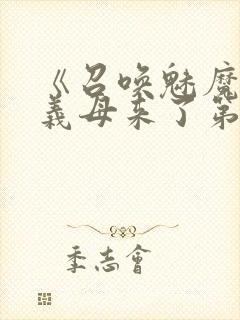 《召唤魅魔
義母来了第
季志會